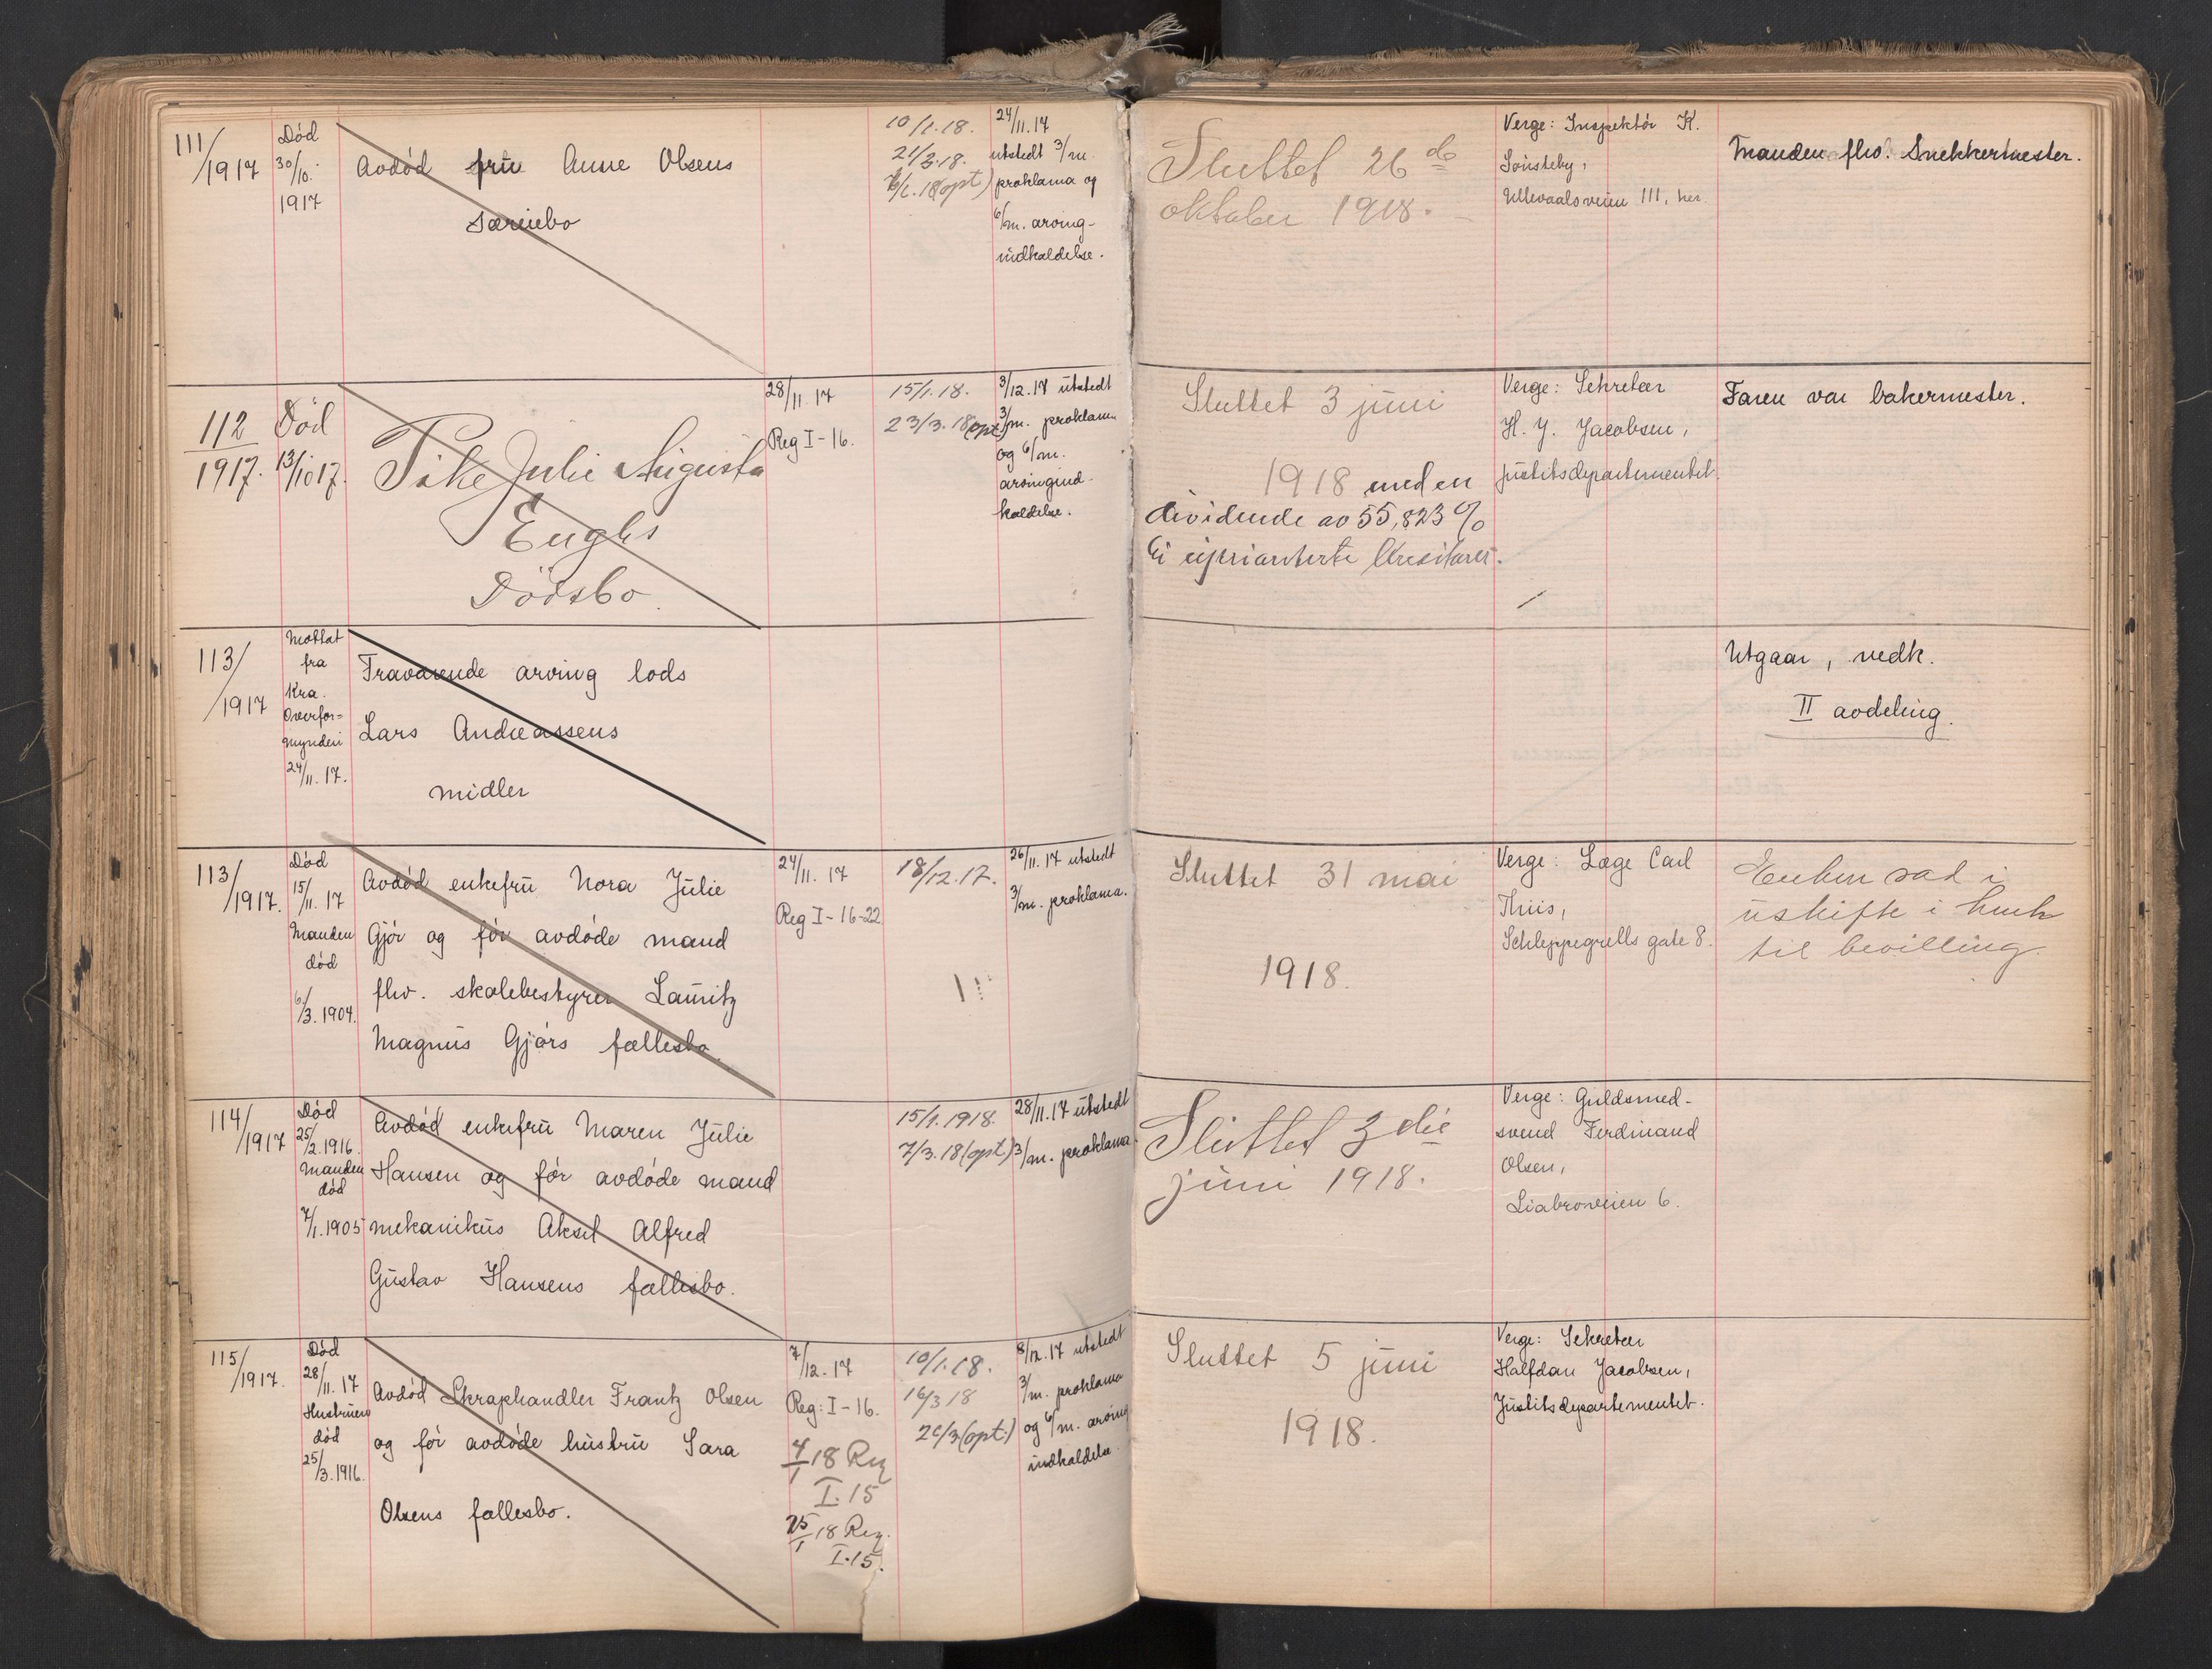 111/1917
Død
30/10.
1917
Avdød fru Anne Olsens
særiebo
10/1.18.
21/3.18.
(opt)
24/11.17
utstedt 3/m.
proklama og
6/m. arving-
indkaldelse.
Sluttet 26de
oktober 1918.
Verge: Inspektør K.
Sønsteby,
Ullevaalsveien 111, her.
Manden fhv. Snekkermester.
112
1917.
Død
13/10 17.
Pike Julie Augusta
Enghs
Dödsbo.
28/11.17
Reg I-16.
15/1.18.
23/3.18(opt)
3/12.17 utstedt
3/m. proklama
og 6/m.
arvingind-
kaldelse.
Sluttet 3 juni
1918 med en
dividende av 55,823%
til uprioriterte kreditorer.
Verge: Sekretær
H. J. Jacobsen,
justitsdepartementet.
Faren var bakermester.
113/1917
Mottat
fra
Kra.
Overfor=
mynderi
24/11.17.
Fraværende arving lods
Lars Andreassens
midler
Utgaar, vedk.
II avdeling.
113/1917.
Død
15/11.17
Manden
død
6/3.1904.
Avdød enkefru Nora Julie
Gjör og før avdøde mand
fhv. skolebestyrer Lauritz
Magnus Gjörs fællesbo.
24/11.17
Reg I-16-22
18/12.17.
26/11.17 utstedt
3/m. proklama.
Sluttet 31 mai
1918.
Verge: Læge Carl
Thiis,
Schleppegrells gate 8.
Enken sad i
uskifte i henh
til bevilling.
114/1917
Død
25/2.1916.
Manden
død
7/1.1905
Avdød enkefru Maren Julie
Hansen og før avdøde mand
mekanikus Aksel Alfred
Gustav Hansens fællesbo.
15/1.1918.
7/3.18(opt)
28/11.17 utstedt
3/m. proklama.
Sluttet 3die
juni 1918.
Verge: Guldsmed-
svend Ferdinand
Olsen,
Liabroveien 6.
115/1917.
Død
28/11.17
Hustruen
død
25/3.1916.
Avdød Skraphandler Frantz Olsen
og før avdøde hustru Sara
Olsens fællesbo.
7/12.17
Reg: I-16.
4/1 18 Reg
I.15
25/1 18 Reg.
I.15.
10/1.18.
16/3 18
26/3(opt.)
8/12.17 utstedt
3/m. proklama
og 6/m. arving
indkaldelse.
Sluttet 5 juni
1918.
Verge: Sekretær
Halfdan Jacobsen,
Justitsdepartementet.